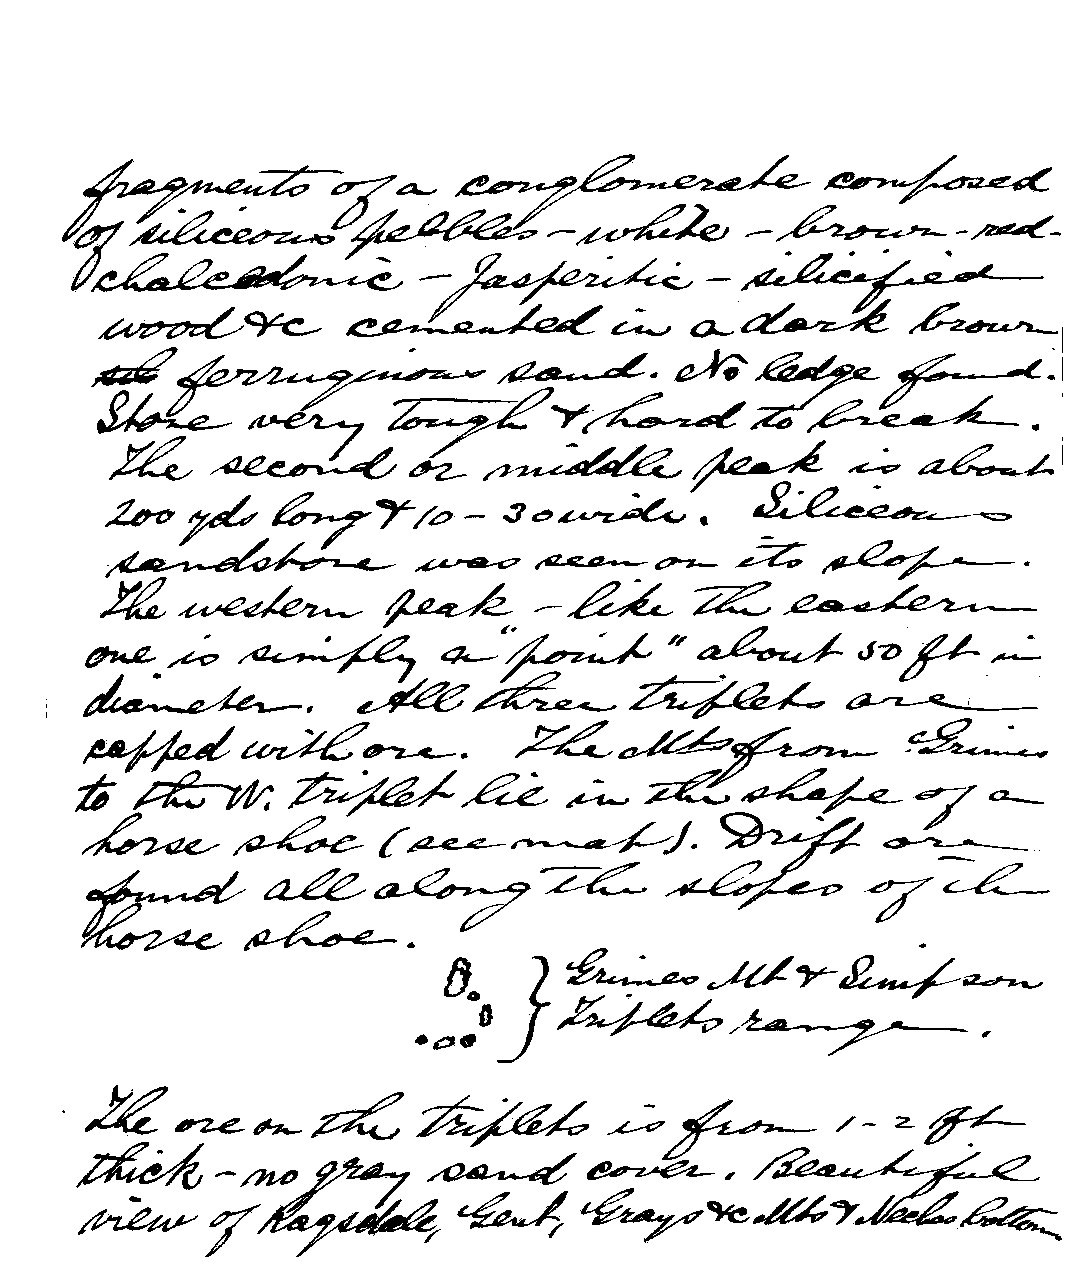 fragments of a conglomerate composed
of siliceous pebbles – white – brown – red –
chalcedonic – Jasperitic – silicified
wood &c cemented in a dark brown
ferruginous sand. No ledge found.
Stone very tough & hard to break.
The second or middle peak is about
200 yds long & 10 – 30 wide. Siliceous
sandstone was seen on its slope.
The western peak – like the eastern
one is simply a "point" about 50 ft in
diameter. All three triplets are
capped with ore. The Mts from Grimes
to the W. triplet lie in the shape of a
horse shoe (see map). Drift ore
found all along the slopes of the
horse shoe.
} Grimes Mt & Simpson
Triplets range.
The ore on the triplets is from 1 – 2 ft
thick – no gray sand cover. Beautiful
view of Ragsdale, Gent, Grays &c Mts & Neches bottom